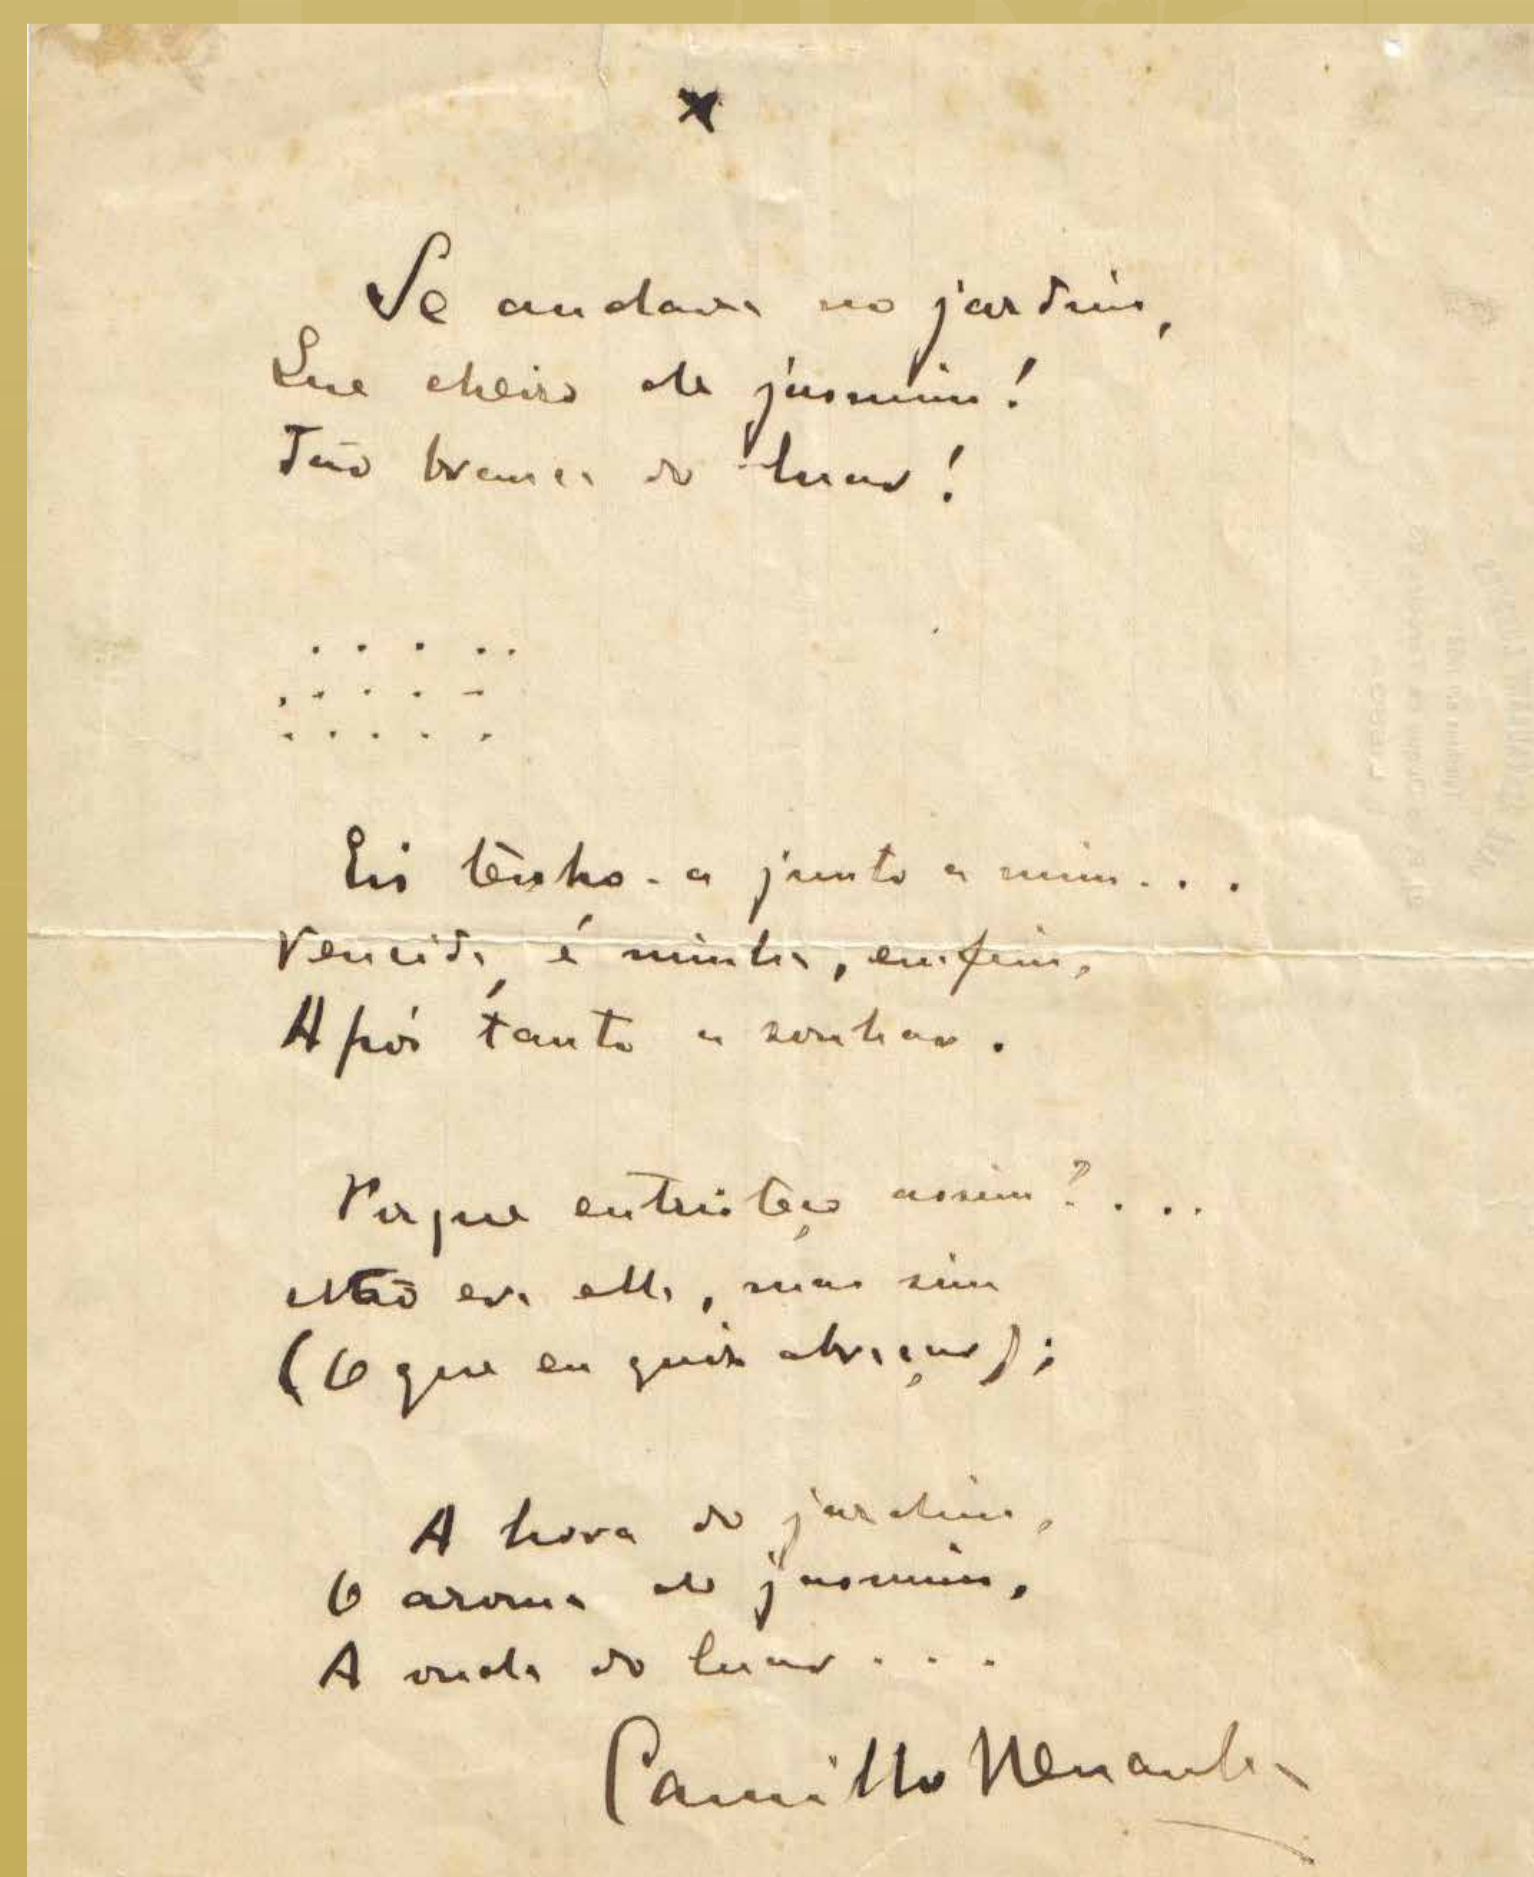 x
Se andava no jardim,
Que cheiro de jasmim!
Tão branca do luar!
. . . . . .
. . . . .
. . . . .
Eis tenho-a junto a mim...
Vencida, é minha, emfim,
Após tanto a sonhar.
Porque entristeço assim?...
Não era ella, mas sim
(O que eu quiz abraçar);
A hora do jardim,
O aroma do jasmim,
A onda do luar...
Camillo Pessanha